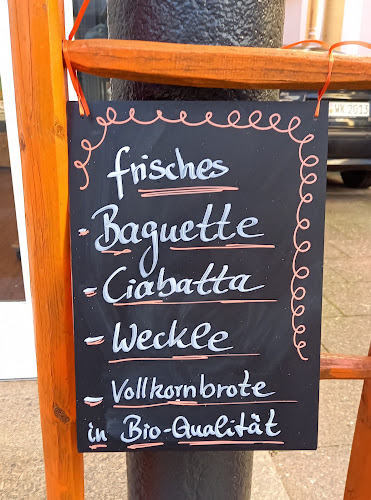 WX 2513
frisches
- Baguette
- Ciabatta
- Weckle
- Vollkornbrote
in Bio-Qualität